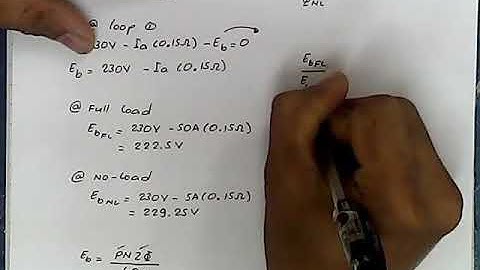 @ loop ①
230V - Ia (0.15Ω) - Eb = 0
Eb = 230V - Ia (0.15Ω)
@ Full Load
EbFL = 230V - 50A (0.15Ω)
= 222.5V
@ No-Load
EbNL = 230V - 5A (0.15Ω)
= 229.25V
Eb = PNZΦ
ENL
EbFL
E